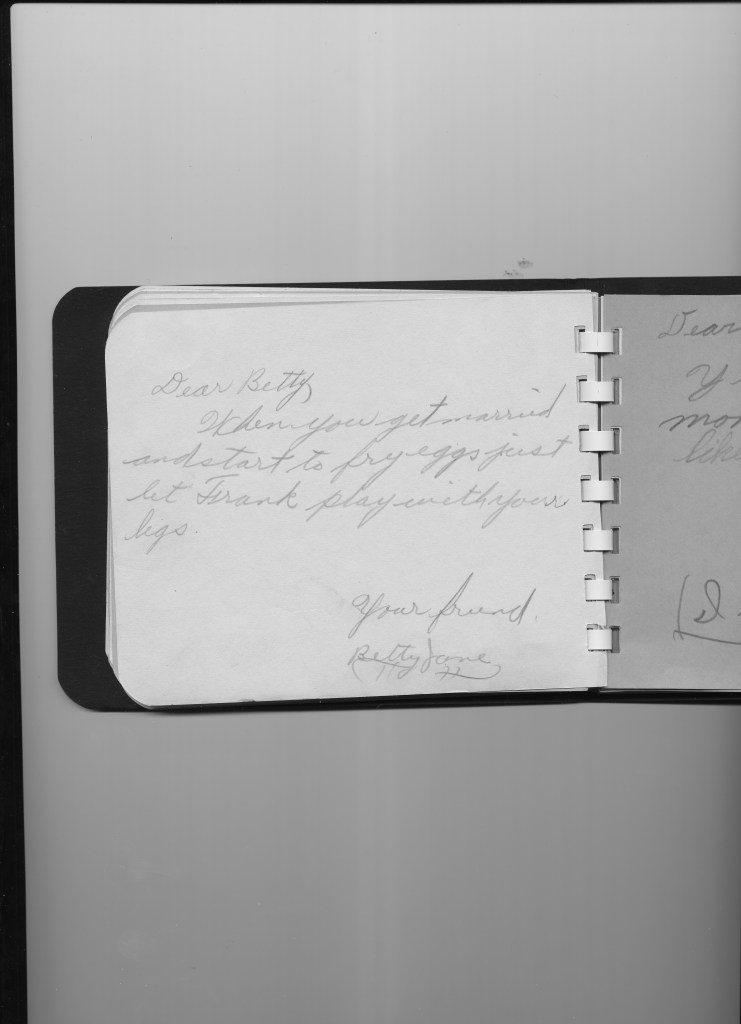 Dear Betty
When you get married
and start to fry eggs just
let Frank play with your
legs.
Your friend.
Betty Jane
Dear